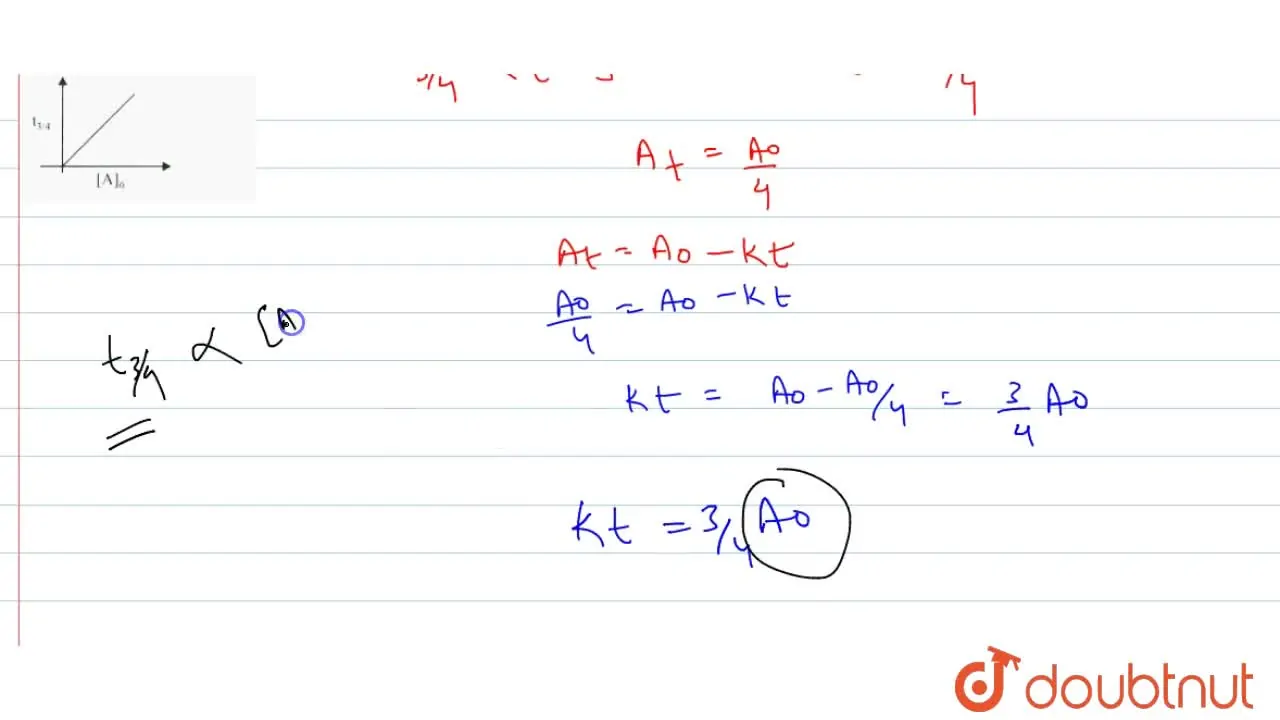 t3/4
[A]0
At = A0/4
At = A0 - Kt
A0/4 = A0 - Kt
t3/4 ∝ [A
Kt = A0 - A0/4 = 3/4 A0
Kt = 3/4 A0
doubtnut